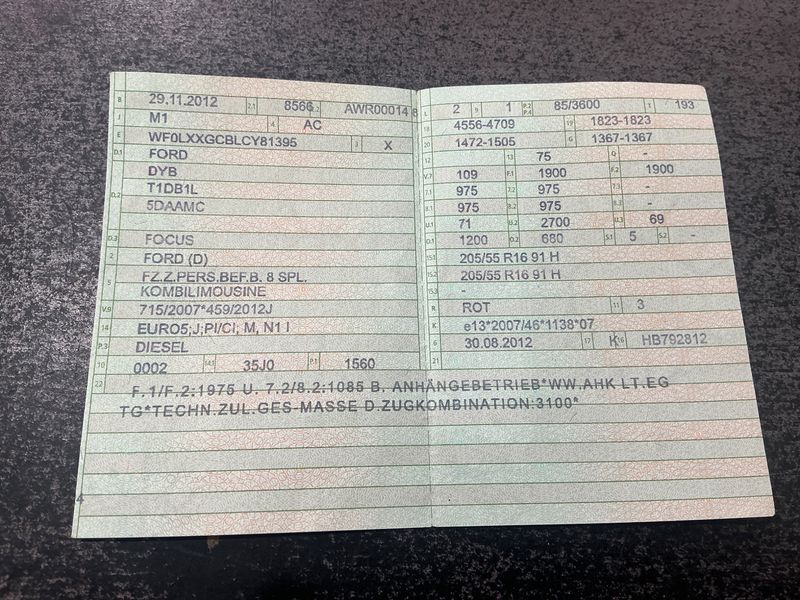 B 29.11.2012 2.1 8566 2.2 AWR00014 8
J M1 4 AC
E WF0LXXGCBLCY81395 3 X
D.1 FORD
DYB
D.2 T1DB1L
5DAAMC
D.3 FOCUS
2 FORD (D)
5 FZ.Z.PERS.BEF.B. 8 SPL.
KOMBILIMOUSINE
V.9 715/2007*459/2012J
14 EURO5;J;PI/CI, M, N1 I
P.3 DIESEL
10 0002 14.1 35J0 P.1 1560
L 2 9 1 P.2 P.4 85/3600 T 193
18 4556-4709 19 1823-1823
20 1472-1505 G 1367-1367
12 - 13 75 Q -
V.7 109 F.1 1900 F.2 1900
7.1 975 7.2 975 7.3 -
8.1 975 8.2 975 8.3 -
U.1 71 U.2 2700 U.3 69
O.1 1200 O.2 680 S.1 5 S.2 -
15.1 205/55 R16 91 H
15.2 205/55 R16 91 H
15.3 -
R ROT 11 3
K e13*2007/46*1138*07
6 30.08.2012 17 K 16 HB792812
21
22 F.1/F.2:1975 U. 7.2/8.2:1085 B. ANHÄNGEBETRIEB*WW.AHK LT.EG
TG*TECHN.ZUL.GES-MASSE D.ZUGKOMBINATION:3100*
4